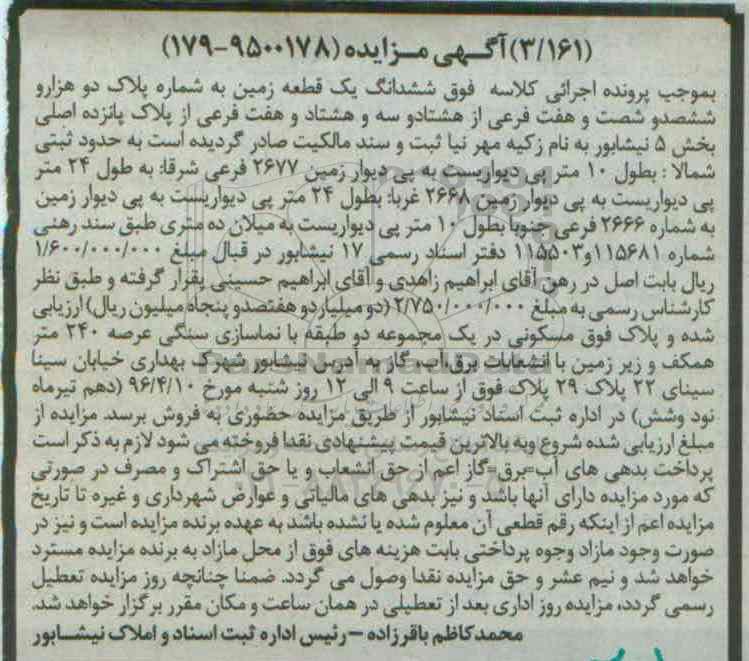 (۳/۱۶۱) آگهی مزایده (۹۵۰۰۱۷۸-۱۷۹)
بموجب پرونده اجرائی کلاسه فوق ششدانگ یک قطعه زمین به شماره پلاک دو هزارو
ششصدو شصت و هفت فرعی از هشتادو سه و هشتاد و هفت فرعی از پلاک پانزده اصلی
بخش ۵ نیشابور به نام زکیه مهر نیا ثبت و سند مالکیت صادر گردیده است به حدود ثبتی
شمالا : بطول ۱۰ متر پی دیواریست به پی دیوار زمین ۲۶۷۷ فرعی شرقا: به طول ۲۴ متر
پی دیواریست به پی دیوار زمین ۲۶۶۸ غربا: بطول ۲۴ متر پی دیواریست به پی دیوار زمین
به شماره ۲۶۶۶ فرعی جنوبا بطول ۱۰ متر پی دیواریست به میلان ده متری طبق سند رهنی
شماره ۱۱۵۶۸۱و۱۱۵۵۰۳ دفتر اسناد رسمی ۱۷ نیشابور در قبال مبلغ ۱/۶۰۰/۰۰۰/۰۰۰
ریال بابت اصل در رهن آقای ابراهیم زاهدی و آقای ابراهیم حسینی یقرار گرفته و طبق نظر
کارشناس رسمی به مبلغ ۲/۷۵۰/۰۰۰/۰۰۰ (دو میلیارد و هفتصدو پنجاه میلیون ریال) ارزیابی
شده و پلاک فوق مسکونی در یک مجموعه دو طبقه با نماسازی سنگی عرصه ۲۴۰ متر
همکف و زیر زمین با انشعابات برق آب گاز به آدرس نیشابور شهرک بهداری خیابان سینا
سینای ۲۲ پلاک ۲۹ پلاک فوق از ساعت ۹ الی ۱۲ روز شنبه مورخ ۹۶/۴/۱۰ (دهم تیرماه
نود وشش) در اداره ثبت اسناد نیشابور از طریق مزایده حضوری به فروش برسد. مزایده از
مبلغ ارزیابی شده شروع وبه بالاترین قیمت پیشنهادی نقدا فروخته می شود لازم به ذکر است
پرداخت بدهی های آب=برق=گاز اعم از حق انشعاب و یا حق اشتراک و مصرف در صورتی
که مورد مزایده دارای آنها باشد و نیز بدهی های مالیاتی و عوارض شهرداری و غیره تا تاریخ
مزایده اعم از اینکه رقم قطعی آن معلوم شده یا نشده باشد به عهده برنده مزایده است و نیز در
صورت وجود مازاد وجوه پرداختی بابت هزینه های فوق از محل مازاد به برنده مزایده مسترد
خواهد شد و نیم عشر و حق مزایده نقدا وصول می گردد. ضمنا چنانچه روز مزایده تعطیل
رسمی گردد، مزایده روز اداری بعد از تعطیلی در همان ساعت و مکان مقرر برگزار خواهد شد.
محمدکاظم باقرزاده – رئیس اداره ثبت اسناد و املاک نیشابور